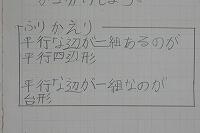 ふりかえり
平行な辺が二組あるのが
平行四辺形
平行な辺が一組なのが
台形